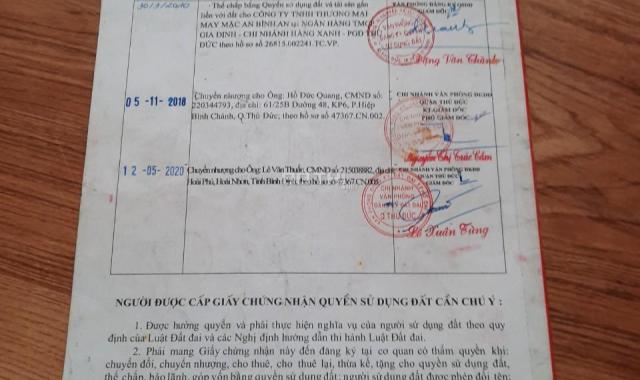 30/3/2010
- Thế chấp bằng Quyền sử dụng đất và tài sản gắn
liền với đất cho CÔNG TY TNHH THƯƠNG MẠI
MAY MẶC AN BÌNH AN tại NGÂN HÀNG TMCP
GIA ĐỊNH - CHI NHÁNH HÀNG XANH - PGD THỦ
ĐỨC theo hồ sơ số 26815.002241.TC.VP.
GIÁM ĐỐC
Đặng Văn Thành
05-11-2018
Chuyển nhượng cho Ông: Hồ Đức Quang, CMND số:
220344793, địa chỉ: 61/25B Đường 48, KP6, P.Hiệp
Bình Chánh, Q.Thủ Đức; theo hồ sơ số 47367.CN.002.
CHI NHÁNH VĂN PHÒNG ĐKĐĐ
QUẬN THỦ ĐỨC
KT.GIÁM ĐỐC
PHÓ GIÁM ĐỐC
Nguyễn Thị Trúc Cầm
12-05-2020
Chuyển nhượng cho Ông: Lê Văn Thuần, CMND số: 215038882, địa chỉ:
Hoài Phú, Hoài Nhơn, Tỉnh Bình
số 47367.CN.003.
CHI NHÁNH VĂN PHÒNG ĐKĐĐ
QUẬN THỦ ĐỨC
GIÁM ĐỐC
CHI NHÁNH
VĂN PHÒNG
ĐĂNG KÝ ĐẤT ĐAI
Q.THỦ ĐỨC
Lê Xuân Tùng
NGƯỜI ĐƯỢC CẤP GIẤY CHỨNG NHẬN QUYỀN SỬ DỤNG ĐẤT CẦN CHÚ Ý :
1. Được hưởng quyền và phải thực hiện nghĩa vụ của người sử dụng đất theo quy
định của Luật Đất đai và các Nghị định hướng dẫn thi hành Luật Đất đai.
2. Phải mang Giấy chứng nhận này đến đăng ký tại cơ quan có thẩm quyền khi:
chuyển đổi, chuyển nhượng, cho thuê, cho thuê lại, thừa kế, tặng cho quyền sử dụng đất,
thế chấp, bảo lãnh, góp vốn bằng quyền sử dụng đất; người sử dụng đất được phép đổi tên;